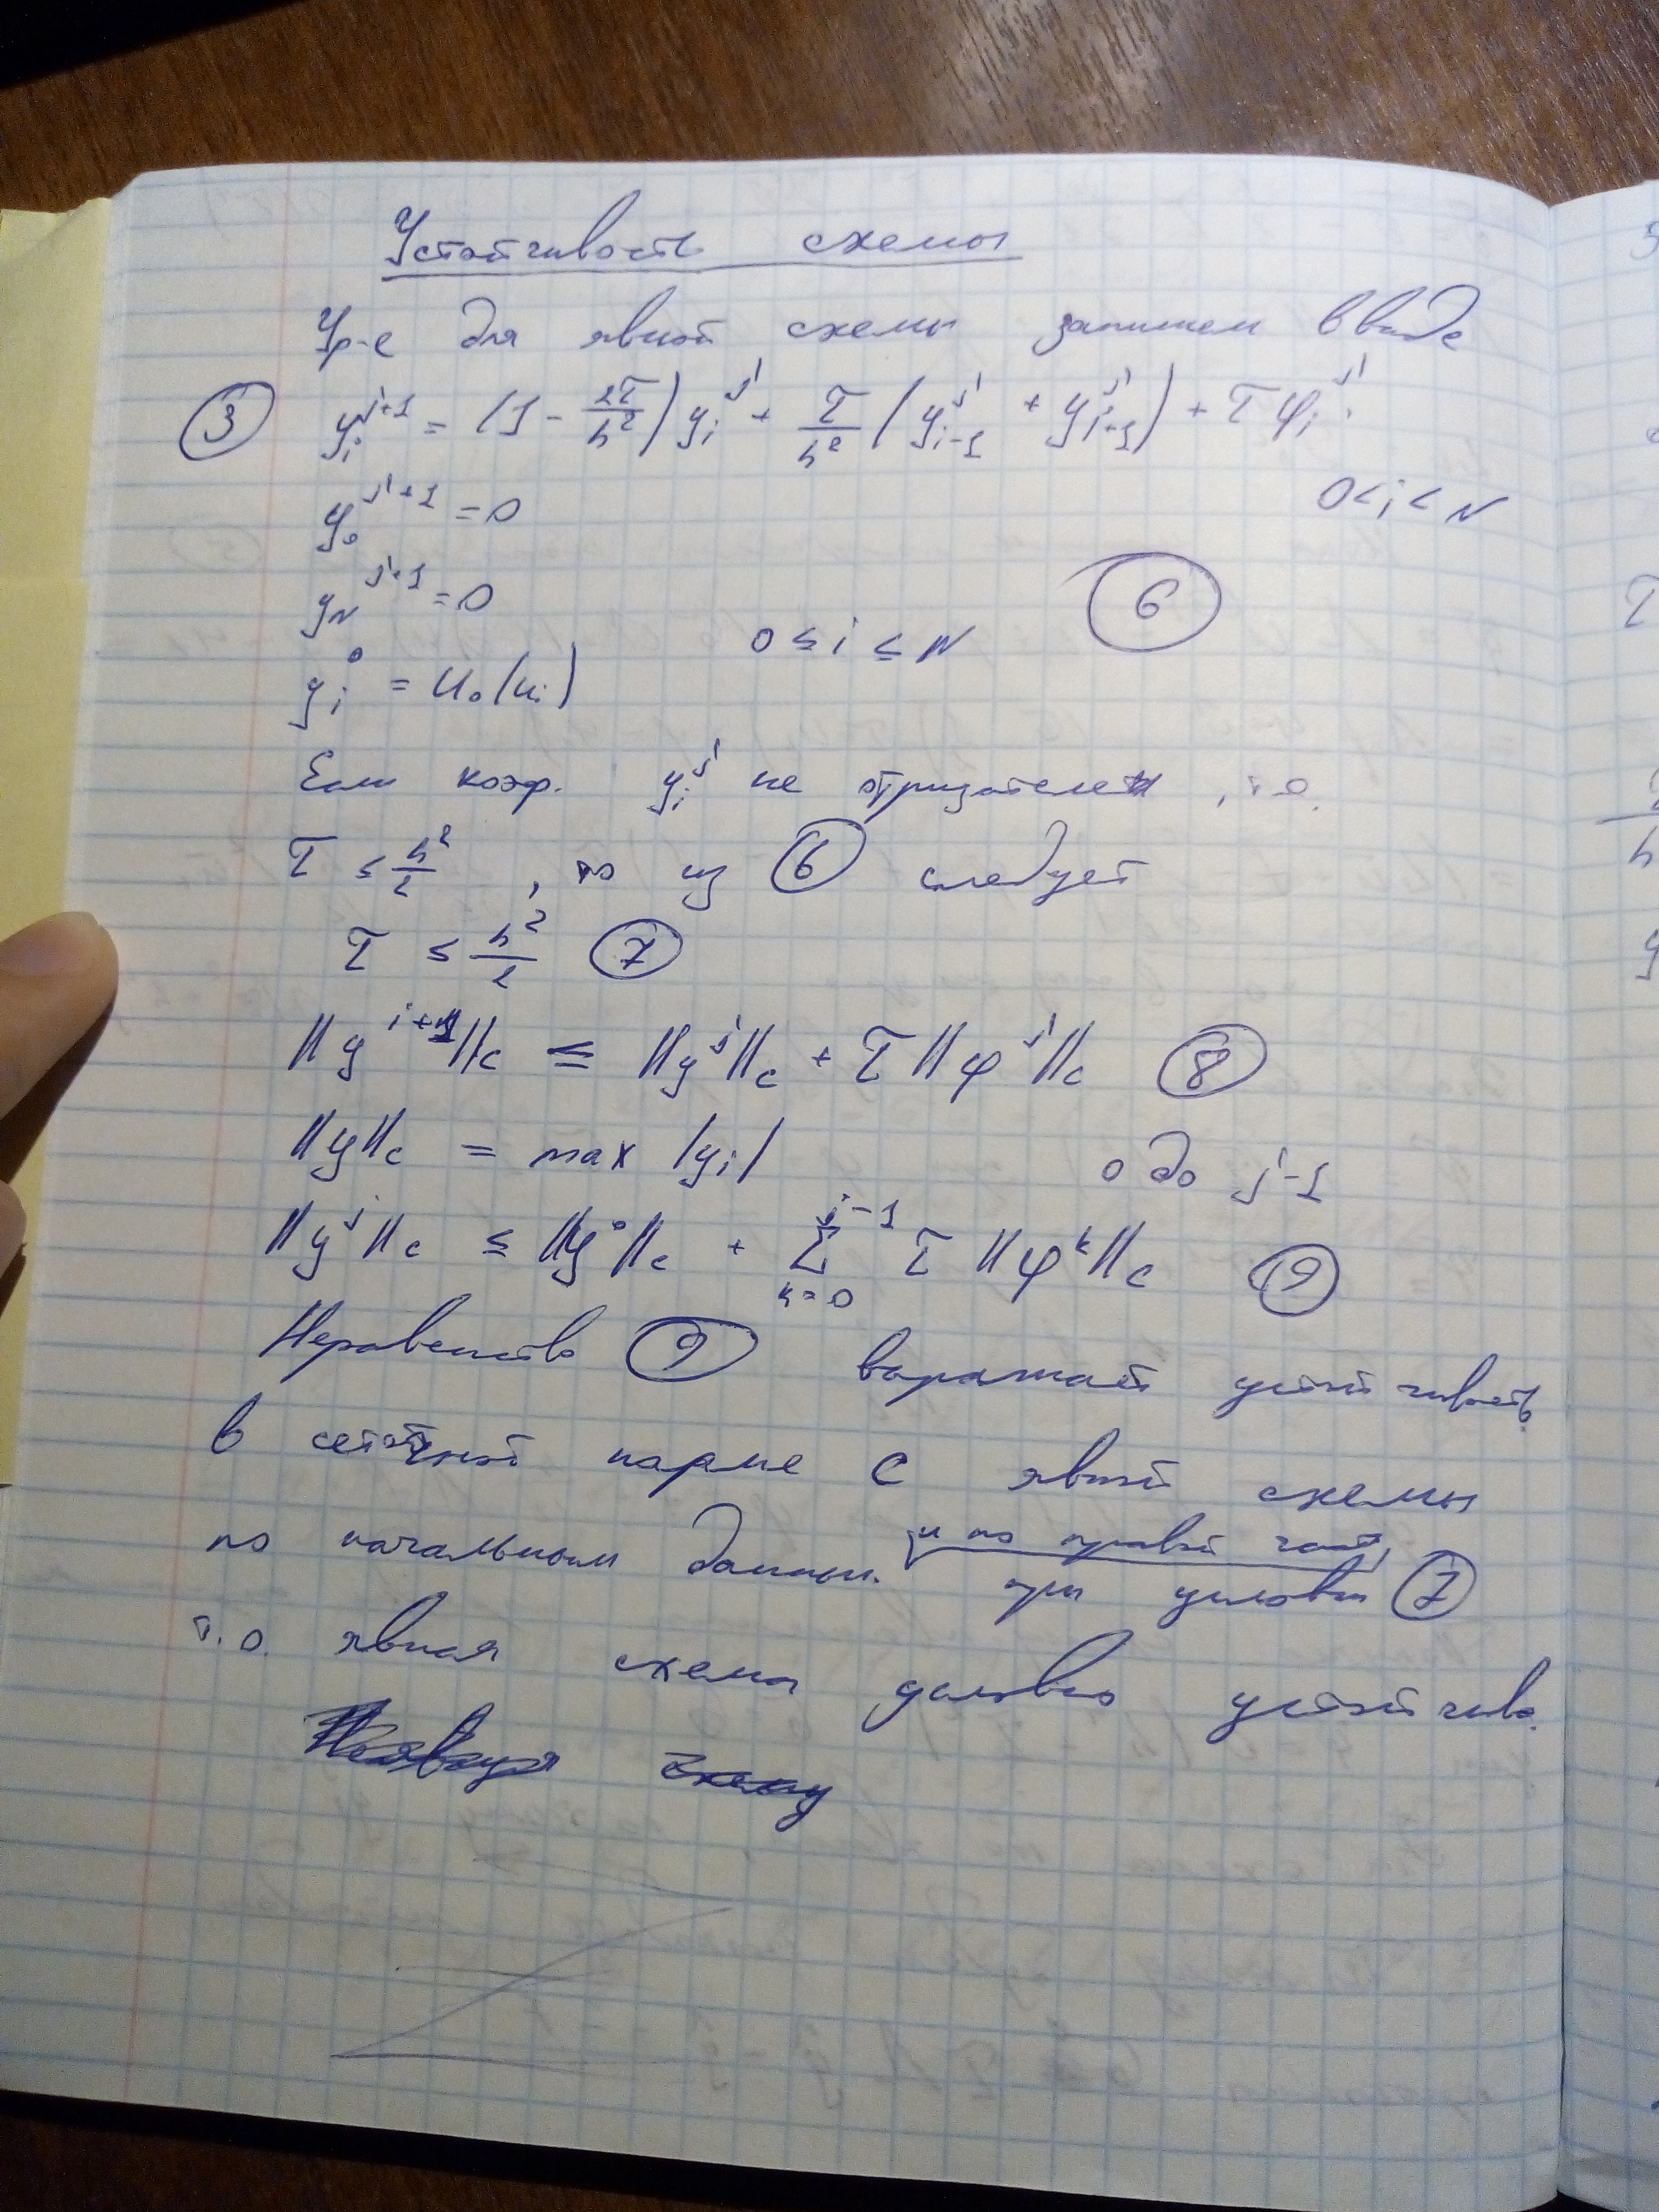 Устойчивость схемы
Ур-е для явной схемы запишем в виде
③ y_i^{j+1} = (1 - 2τ/h²) y_i^j + τ/h² (y_{i-1}^j + y_{i+1}^j) + τ φ_i^j,
y_0^{j+1} = 0 0 < i < N
y_N^{j+1} = 0 ⑥
y_i^0 = u_0(x_i) 0 ≤ i ≤ N
Если коэф. y_i^j не отрицателен, т.е.
τ ≤ h²/2, то из ⑥ следует
τ ≤ h²/2 ⑦
||y^{j+1}||_c ≤ ||y^j||_c + τ ||φ^j||_c ⑧
||y||_c = max |y_i| 0 до j-1
||y^j||_c ≤ ||y^0||_c + Σ_{k=0}^{j-1} τ ||φ^k||_c ⑨
Неравенство ⑨ выражает устойчивость
в сеточной норме C явной схемы
и по правой части
по начальным данным при условии ⑦
т.о. явная схема условно устойчива.